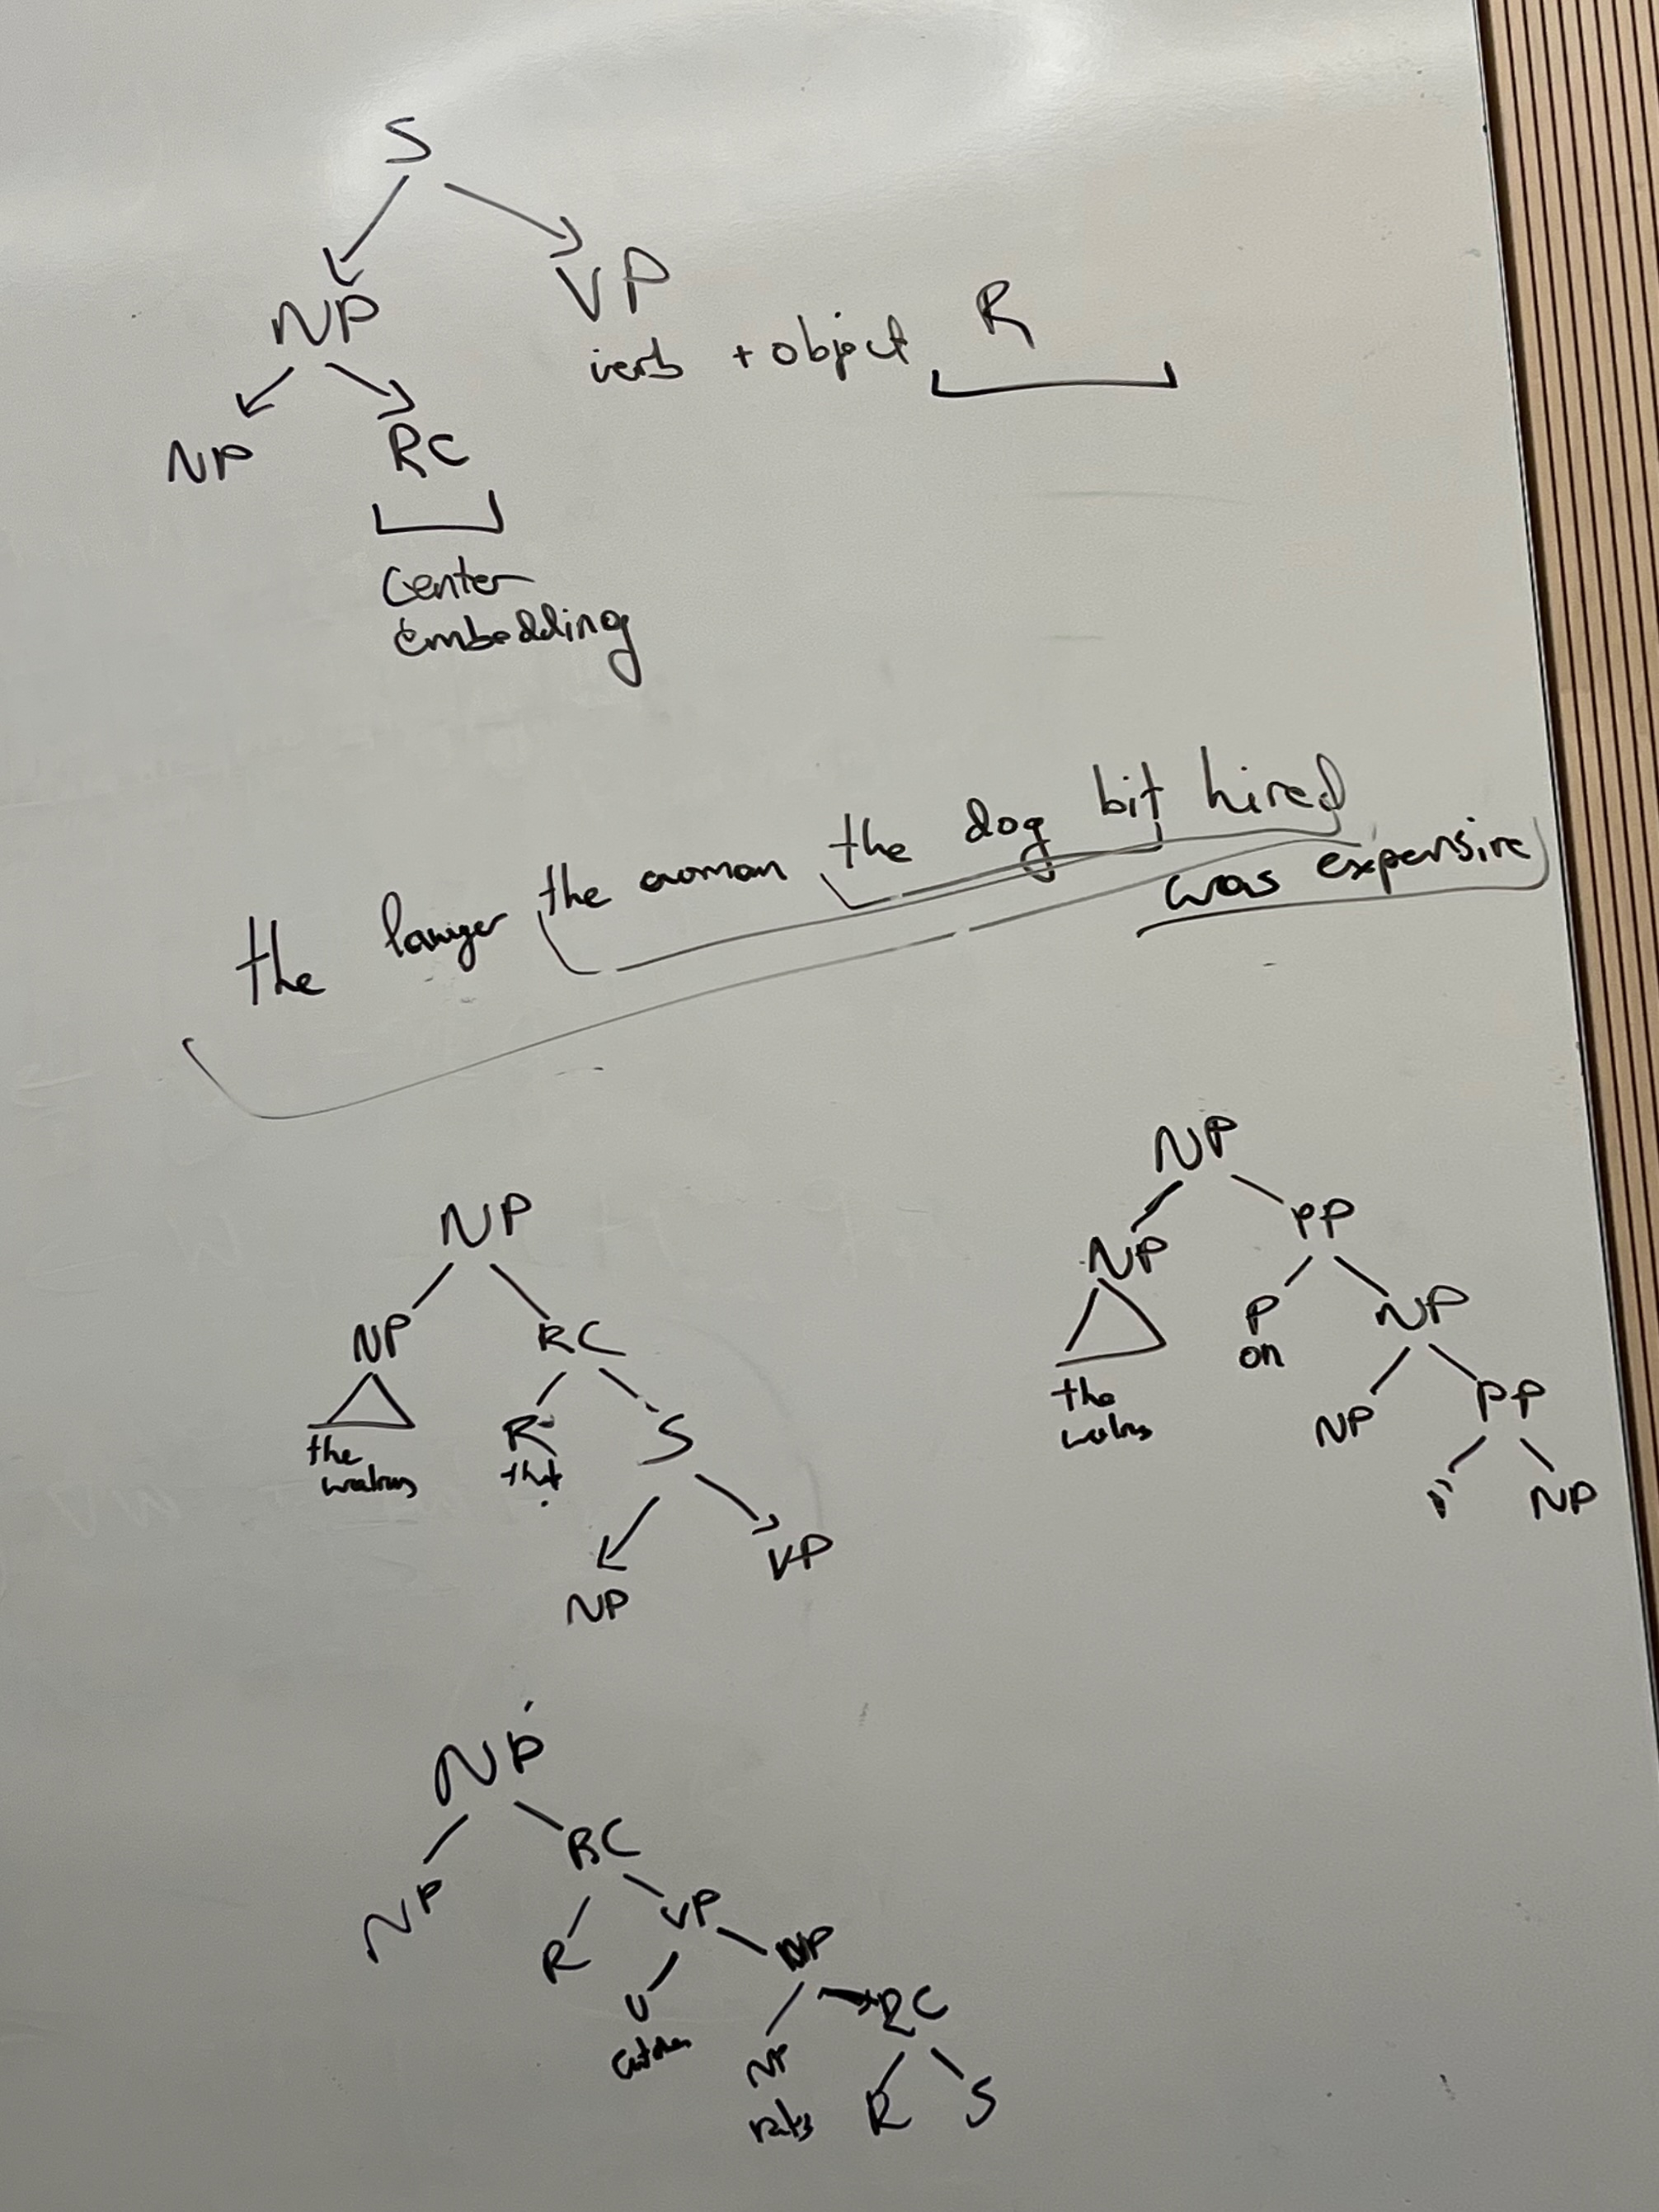 S
NP VP
verb + object R
NP RC
Center
embedding
the lawyer the woman the dog bit hired
was expensive
NP
NP RC
the
walrus
R S
that
NP VP
NP
NP PP
the
walrus
P NP
on
NP PP
NP
NP
NP RC
R VP
V NP
catches
NP RC
rats
R S